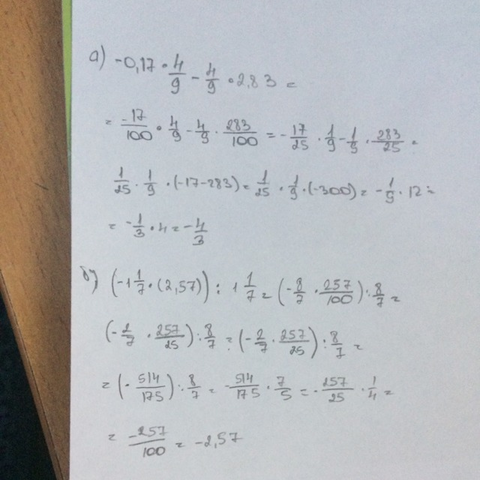 а) -0,17 · 4/9 - 4/9 · 2,83 =
= -17/100 · 4/9 - 4/9 · 283/100 = - 17/25 · 1/9 - 1/9 · 283/25 =
1/25 · 1/9 · (-17-283) = 1/25 · 1/9 · (-300) = - 1/9 · 12 =
= - 1/3 · 4 = - 4/3
б) (-1 1/7 · (2,57)) : 1 1/7 = (- 8/7 · 257/100) : 8/7 =
(- 2/7 · 257/25) : 8/7 = (- 2/7 · 257/25) : 8/7 =
= (- 514/175) : 8/7 = - 514/175 · 7/5 = - 257/25 · 1/4 =
= -257/100 = -2,57